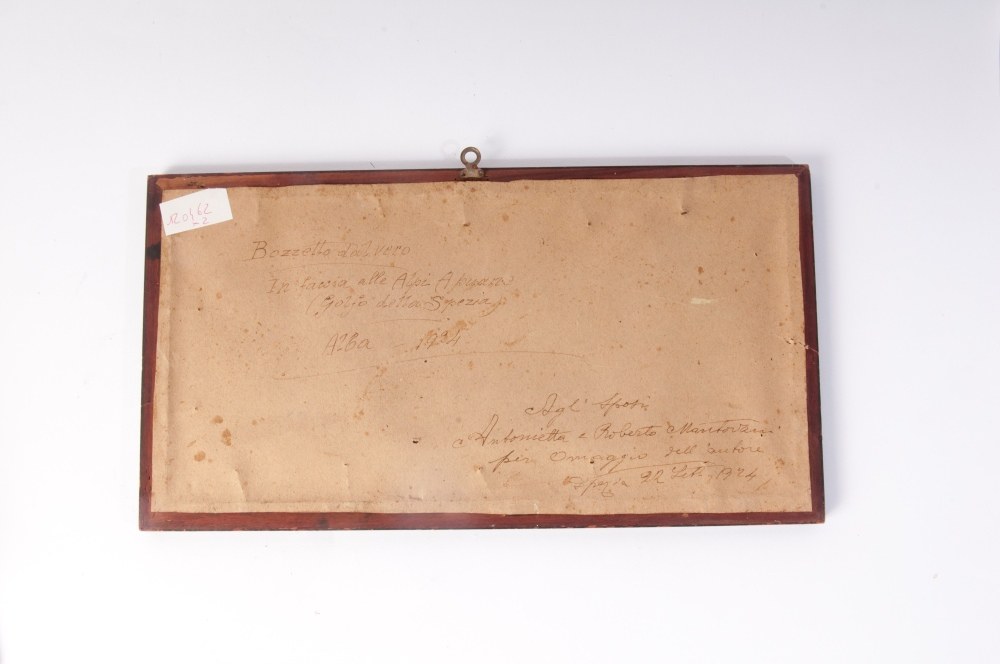 120462
-2
Bozzetto dal vero
In faccia alle Alpi Apuane
(Golfo della Spezia)
Alba 1924
Agl' Sposi
Antonietta e Roberto Mantovani
per Omaggio dell'autore
Spezia 22 Sett. 1924